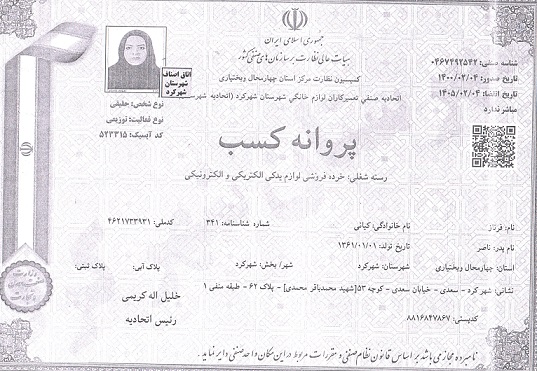 جمهوری اسلامی ایران
هیات عالی نظارت بر سازمان های صنفی کشور
کمیسیون نظارت مرکز استان چهارمحال وبختیاری
اتحادیه صنفی تعمیرکاران لوازم خانگی شهرستان شهرکرد (اتحادیه شهرستان)
شناسه صنفی: ۰۴۶۷۴۹۲۵۴۲
تاریخ صدور: ۱۴۰۰/۰۲/۰۴
تاریخ انقضا: ۱۴۰۵/۰۲/۰۴
مباشر ندارد
اتاق اصناف
شهرستان
شهرکرد
نوع شخص: حقیقی
نوع فعالیت: توزیعی
کد آیسیک: ۵۲۳۳۱۵
پروانه کسب
رسته شغلی: خرده فروشی لوازم یدکی الکتریکی و الکترونیکی
نام: فرناز نام خانوادگی: کیانی شماره شناسنامه: ۳۴۱ کدملی: ۴۶۲۱۷۳۳۹۳۱
نام پدر: ناصر تاریخ تولد: ۱۳۶۱/۰۱/۰۱
استان: چهارمحال وبختیاری شهرستان: شهرکرد شهر/ بخش: شهرکرد پلاک آبی: پلاک ثبتی:
نشانی: شهرکرد - سعدی - خیابان سعدی - کوچه ۵۳[شهید محمدباقر محمدی] - پلاک ۶۲ - طبقه منفی ۱
کدپستی: ۸۸۱۶۸۴۷۸۶۷
خلیل اله کریمی
رئیس اتحادیه
نامبرده مجاز می باشد بر اساس قانون نظام صنفی و مقررات مربوط در این مکان واحد صنفی دایر نماید.